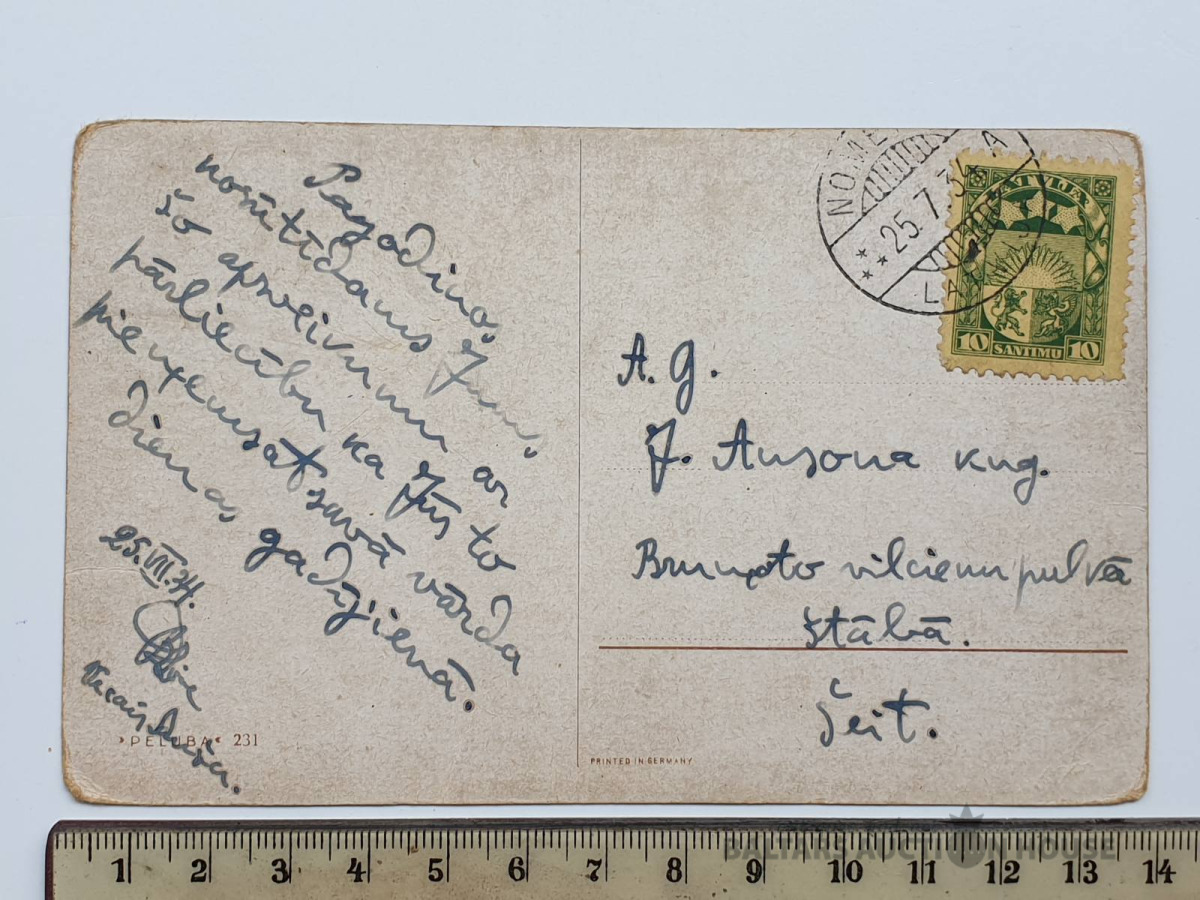 Pagodinos
nosūtīdams Jums,
šo apsveikumu ar
pārliecību ka Jūs to
pieņemsāt savā vārda
dienas gadījienā.
25.VII.34.
»PELUBA« 231
A. G.
J. Ansona kng.
Bruņoto vilcienu pulka
štābā.
Šeit.
PRINTED IN GERMANY
25.7.34
LATVIJA
10 SANTIMU 10
1 2 3 4 5 6 7 8 9 10 11 12 13 14
BALTARS AUCTION HOUSE